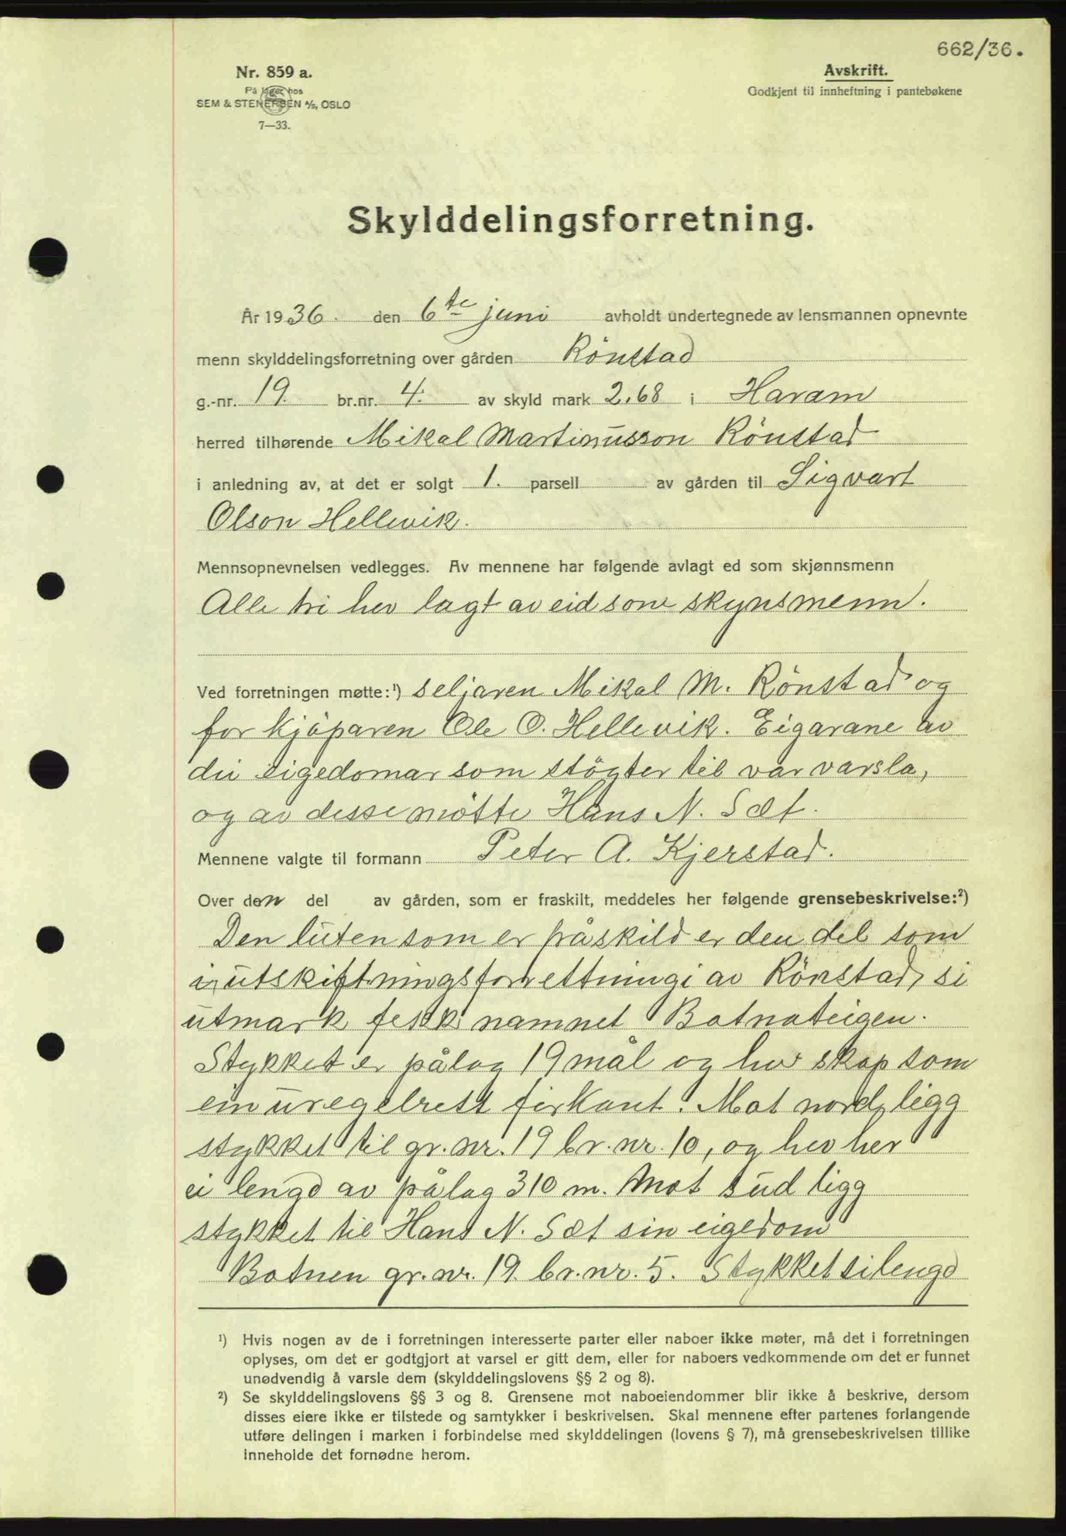 662/36.
Nr. 859 a.
På lager hos
SEM & STENERSEN A/S, OSLO
7—33.
Avskrift.
Godkjent til innheftning i pantebøkene
Skylddelingsforretning.
År 1936. den 6te juni avholdt undertegnede av lensmannen opnevnte
menn skylddelingsforretning over gården Rönstad
g.-nr. 19. br.nr. 4. av skyld mark 2.68 i Haram
herred tilhørende Mikal Martinusson Rönstad
i anledning av, at det er solgt 1. parsell av gården til Sigvart
Olson Hellevik.
Mennsopnevnelsen vedlegges. Av mennene har følgende avlagt ed som skjønnsmenn
Alle tri hev lagt av eid som skynsmenn.
Ved forretningen møtte:¹) seljaren Mikal M. Rönstad og
for kjöparen Ole O. Hellevik. Eigarane av
dei eigedomar som stöyter til var varsla,
og av desse mötte Hans N. Sæt.
Mennene valgte til formann Peter A. Kjerstad.
Over den del av gården, som er fraskilt, meddeles her følgende grensebeskrivelse:²)
Den luten som er fråskild er den del som
i utskiftningsforrettningi av Rönstad, si
utmark fekk namnet Botnateigen.
Stykket er pålag 19 mål og hev skap som
ein uregelrett firkant. Mot nord ligg
stykket til gr. nr. 19 br. nr. 10, og hev her
ei lengd av pålag 310 m. Mot sud ligg
stykket til Hans N. Sæt sin eigedom
Botnen gr. nr. 19 br. nr. 5. Stykket si lengd
¹) Hvis nogen av de i forretningen interesserte parter eller naboer ikke møter, må det i forretningen
oplyses, om det er godtgjort at varsel er gitt dem, eller for naboers vedkommende om det er funnet
unødvendig å varsle dem (skylddelingslovens §§ 2 og 8).
²) Se skylddelingslovens §§ 3 og 8. Grensene mot naboeiendommer blir ikke å beskrive, dersom
disses eiere ikke er tilstede og samtykker i beskrivelsen. Skal mennene efter partenes forlangende
utføre delingen i marken i forbindelse med skylddelingen (lovens § 7), må grensebeskrivelsen tillike
inneholde det fornødne herom.